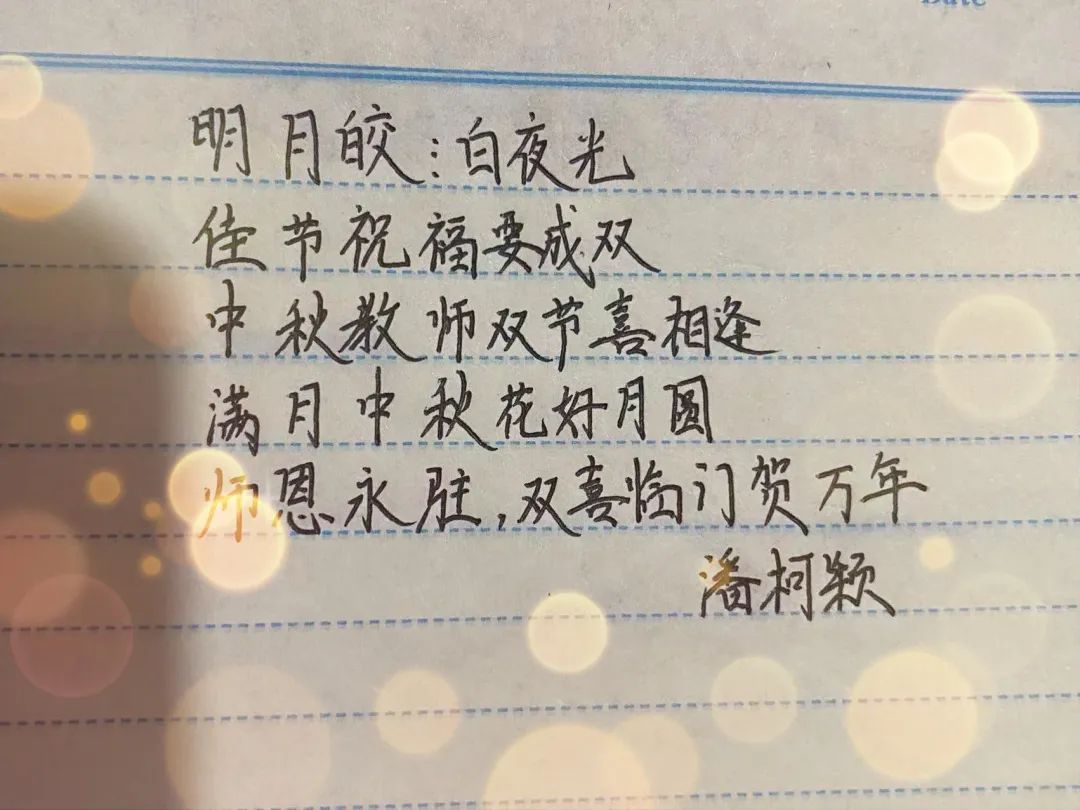 Date
明月皎:白夜光
佳节祝福要成双
中秋教师双节喜相逢
满月中秋花好月圆
师恩永驻,双喜临门贺万年
潘柯颖